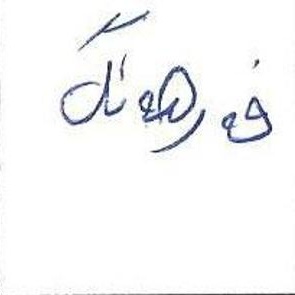 فرهنگ